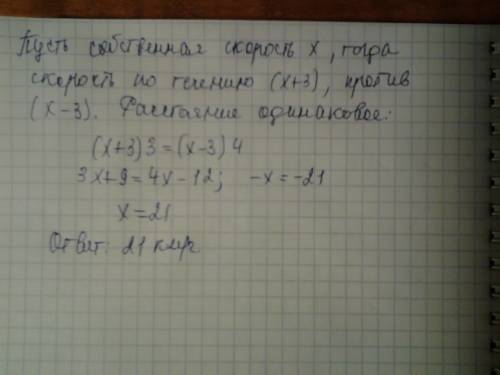 Пусть собственная скорость x, тогда
скорость по течению (x+3), против
(x-3). Расстояние одинаковое:
(x+3)3=(x-3)4
3x+9=4x-12; -x=-21
x=21
Ответ: 21 км/ч